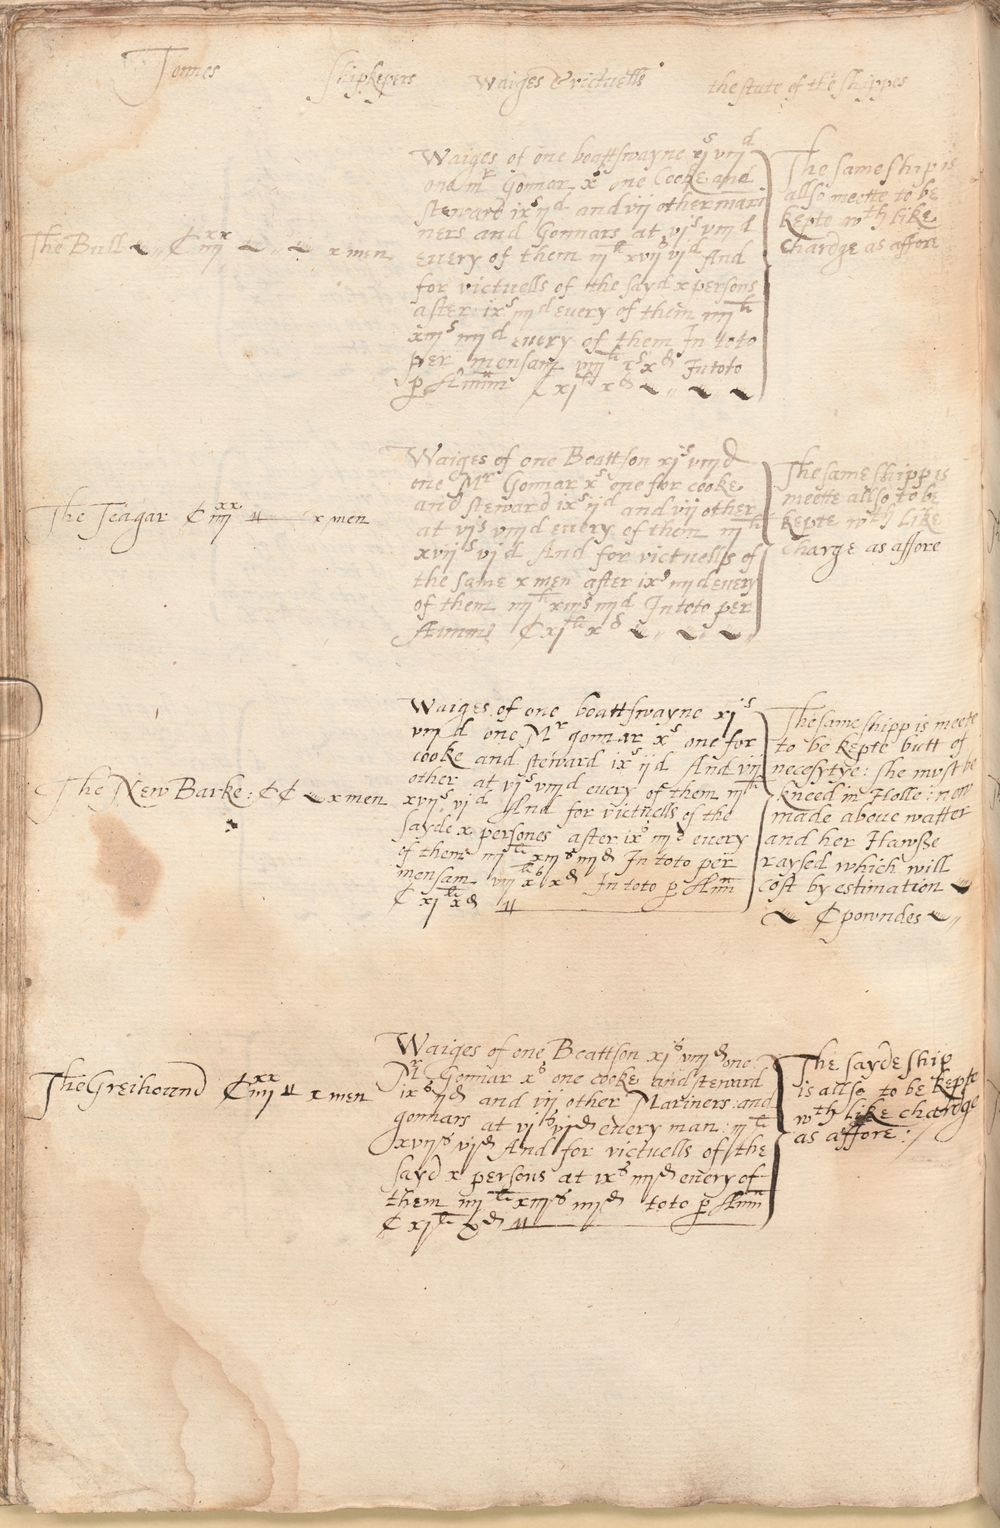 Tonnes shipkepers Waiges & victuells the state of the shippes
The Bull C iiij xx x men
Waiges of one boattswayne xj s viij d
one mr Gonnar x s one Cooke and
steward ix s ij d and vij other mari
ners and Gonnars at vj s viij d
euery of them iij li xvij s vj d And
for victuells of the sayd x persons
after ix s iiij d euery of them iiij li
xiij s iiij d euery of them In toto
per mensam viij li x s x d In toto
p Annum C xj li x d
The same ship is
allso meette to be
kepte wth like
Chardge as affore
The Teagar C iiij xx x men
Waiges of one Boattson xj s viij d
one Mr Gonnar x s one for cooke
and steward ix s ij d and vij other
at vj s viij d euery of them iij li
xvij s vj d And for victuells of
the same x men after ix s iiij d euery
of them iiij li xiij s iiij d In toto per
Annum C xj li x d
The same shipp is
meette allso to be
kepte wth like
Charge as affore
The New Barke : CC x men
Waiges of one boattswayne xj s
viij d one Mr gonnar x s one for
cooke and steward ix s ij d And vij
other at vj s viij d euery of them iij li
xvij s vj d And for victuells of the
sayde x persones after ix s iiij d euery
of them iiij li xiij s iiij d In toto per
mensam viij li x s x d In toto p Ann
C xj li x d
The same shipp is meete
to be kepte butt of
necesytye : she must be
kneed in Holle : now
made aboue watter
and her Hawsse
raysed which will
cost by estimation
C powndes
The Greihound C iiij xx x men
Waiges of one Boattson xj s viij d one
Mr Gonnar x s one cooke and steward
ix s ij d and vij other Mariners and
gonnars at vj s vj d euery man : iij li
xvij s vj d And for victuells of the
sayd x persons at ix s iiij d euery of
them iiij li xiij s iiij d toto p Ann
C xj li x d
The sayde ship
is allso to be kepte
wth like charge
as affore :/